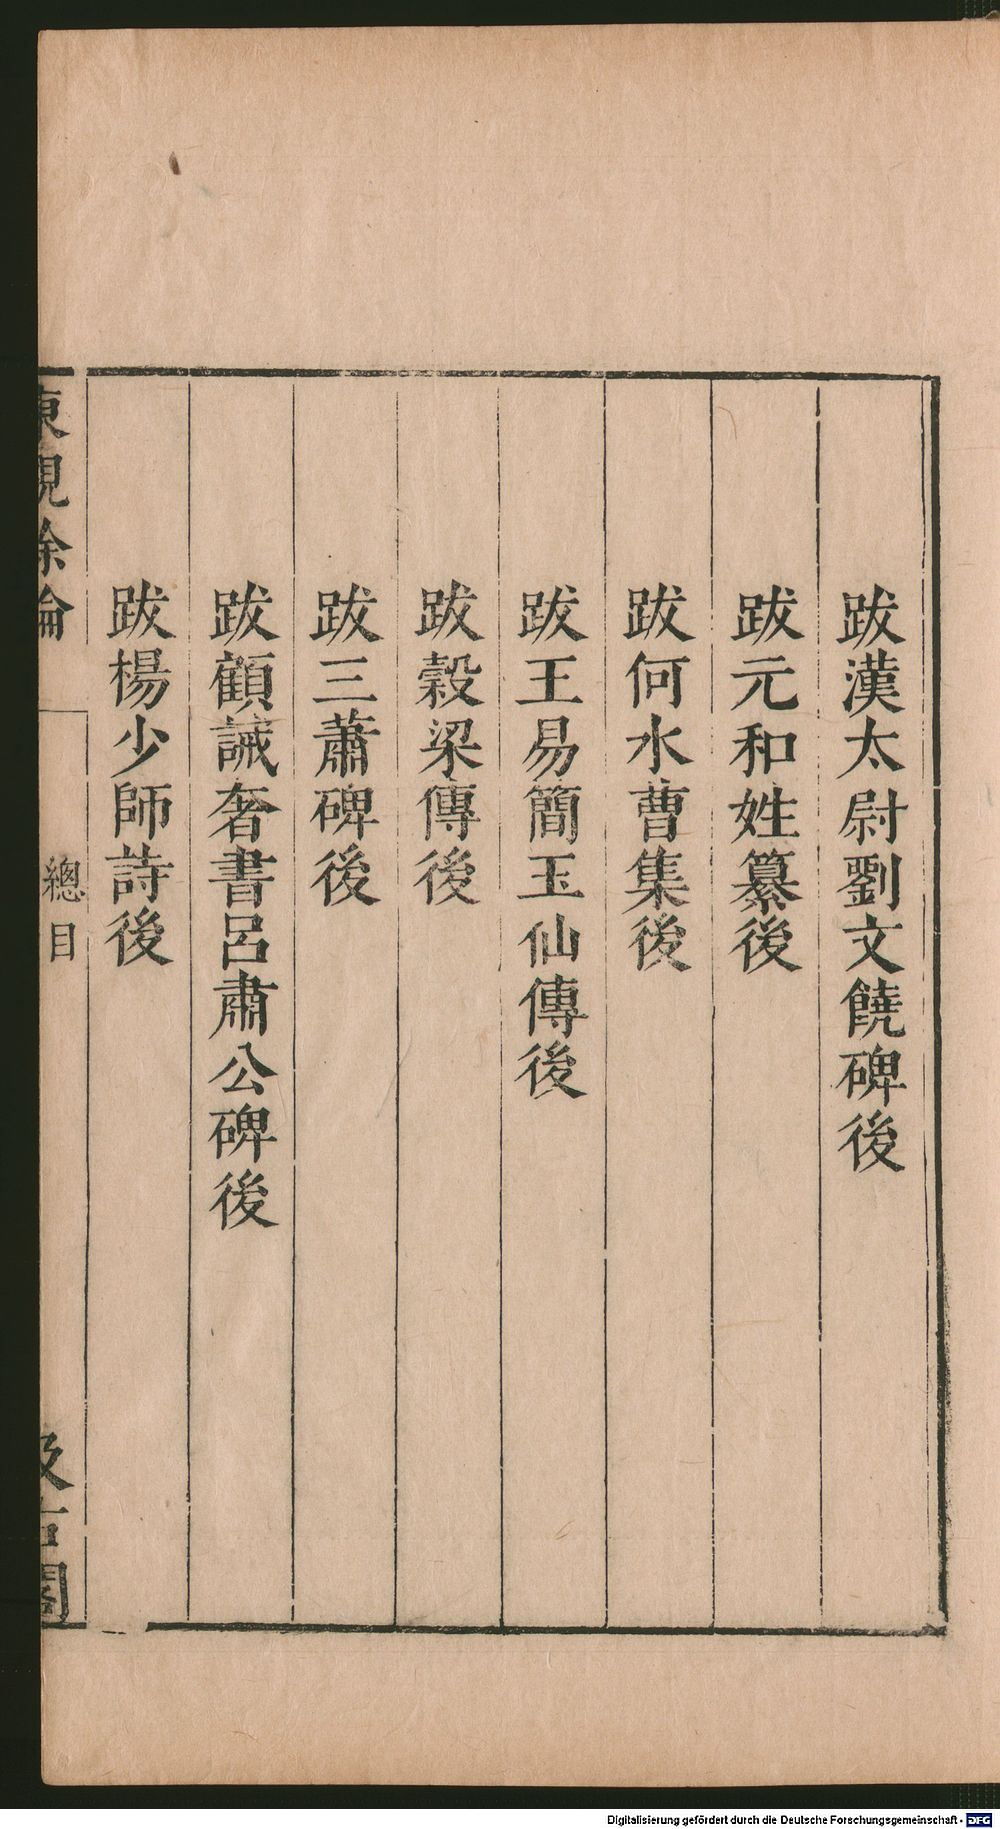 跋漢太尉劉文饒碑後
跋元和姓纂後
跋何水曹集後
跋王易簡玉仙傳後
跋穀梁傳後
跋三蕭碑後
跋顧誡奢書呂肅公碑後
跋楊少師詩後
東觀餘論
總目
汲古閣
Digitalisierung gefördert durch die Deutsche Forschungsgemeinschaft - DFG